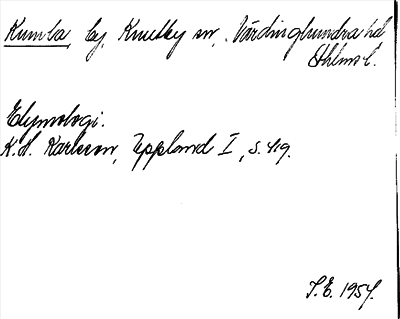 Kumla, by, Knutby sn, Närdinghundra hd
Sthlms l.
Etymologi.
K.H. Karlsson, Uppland I, s. 419.
S.E. 1954.